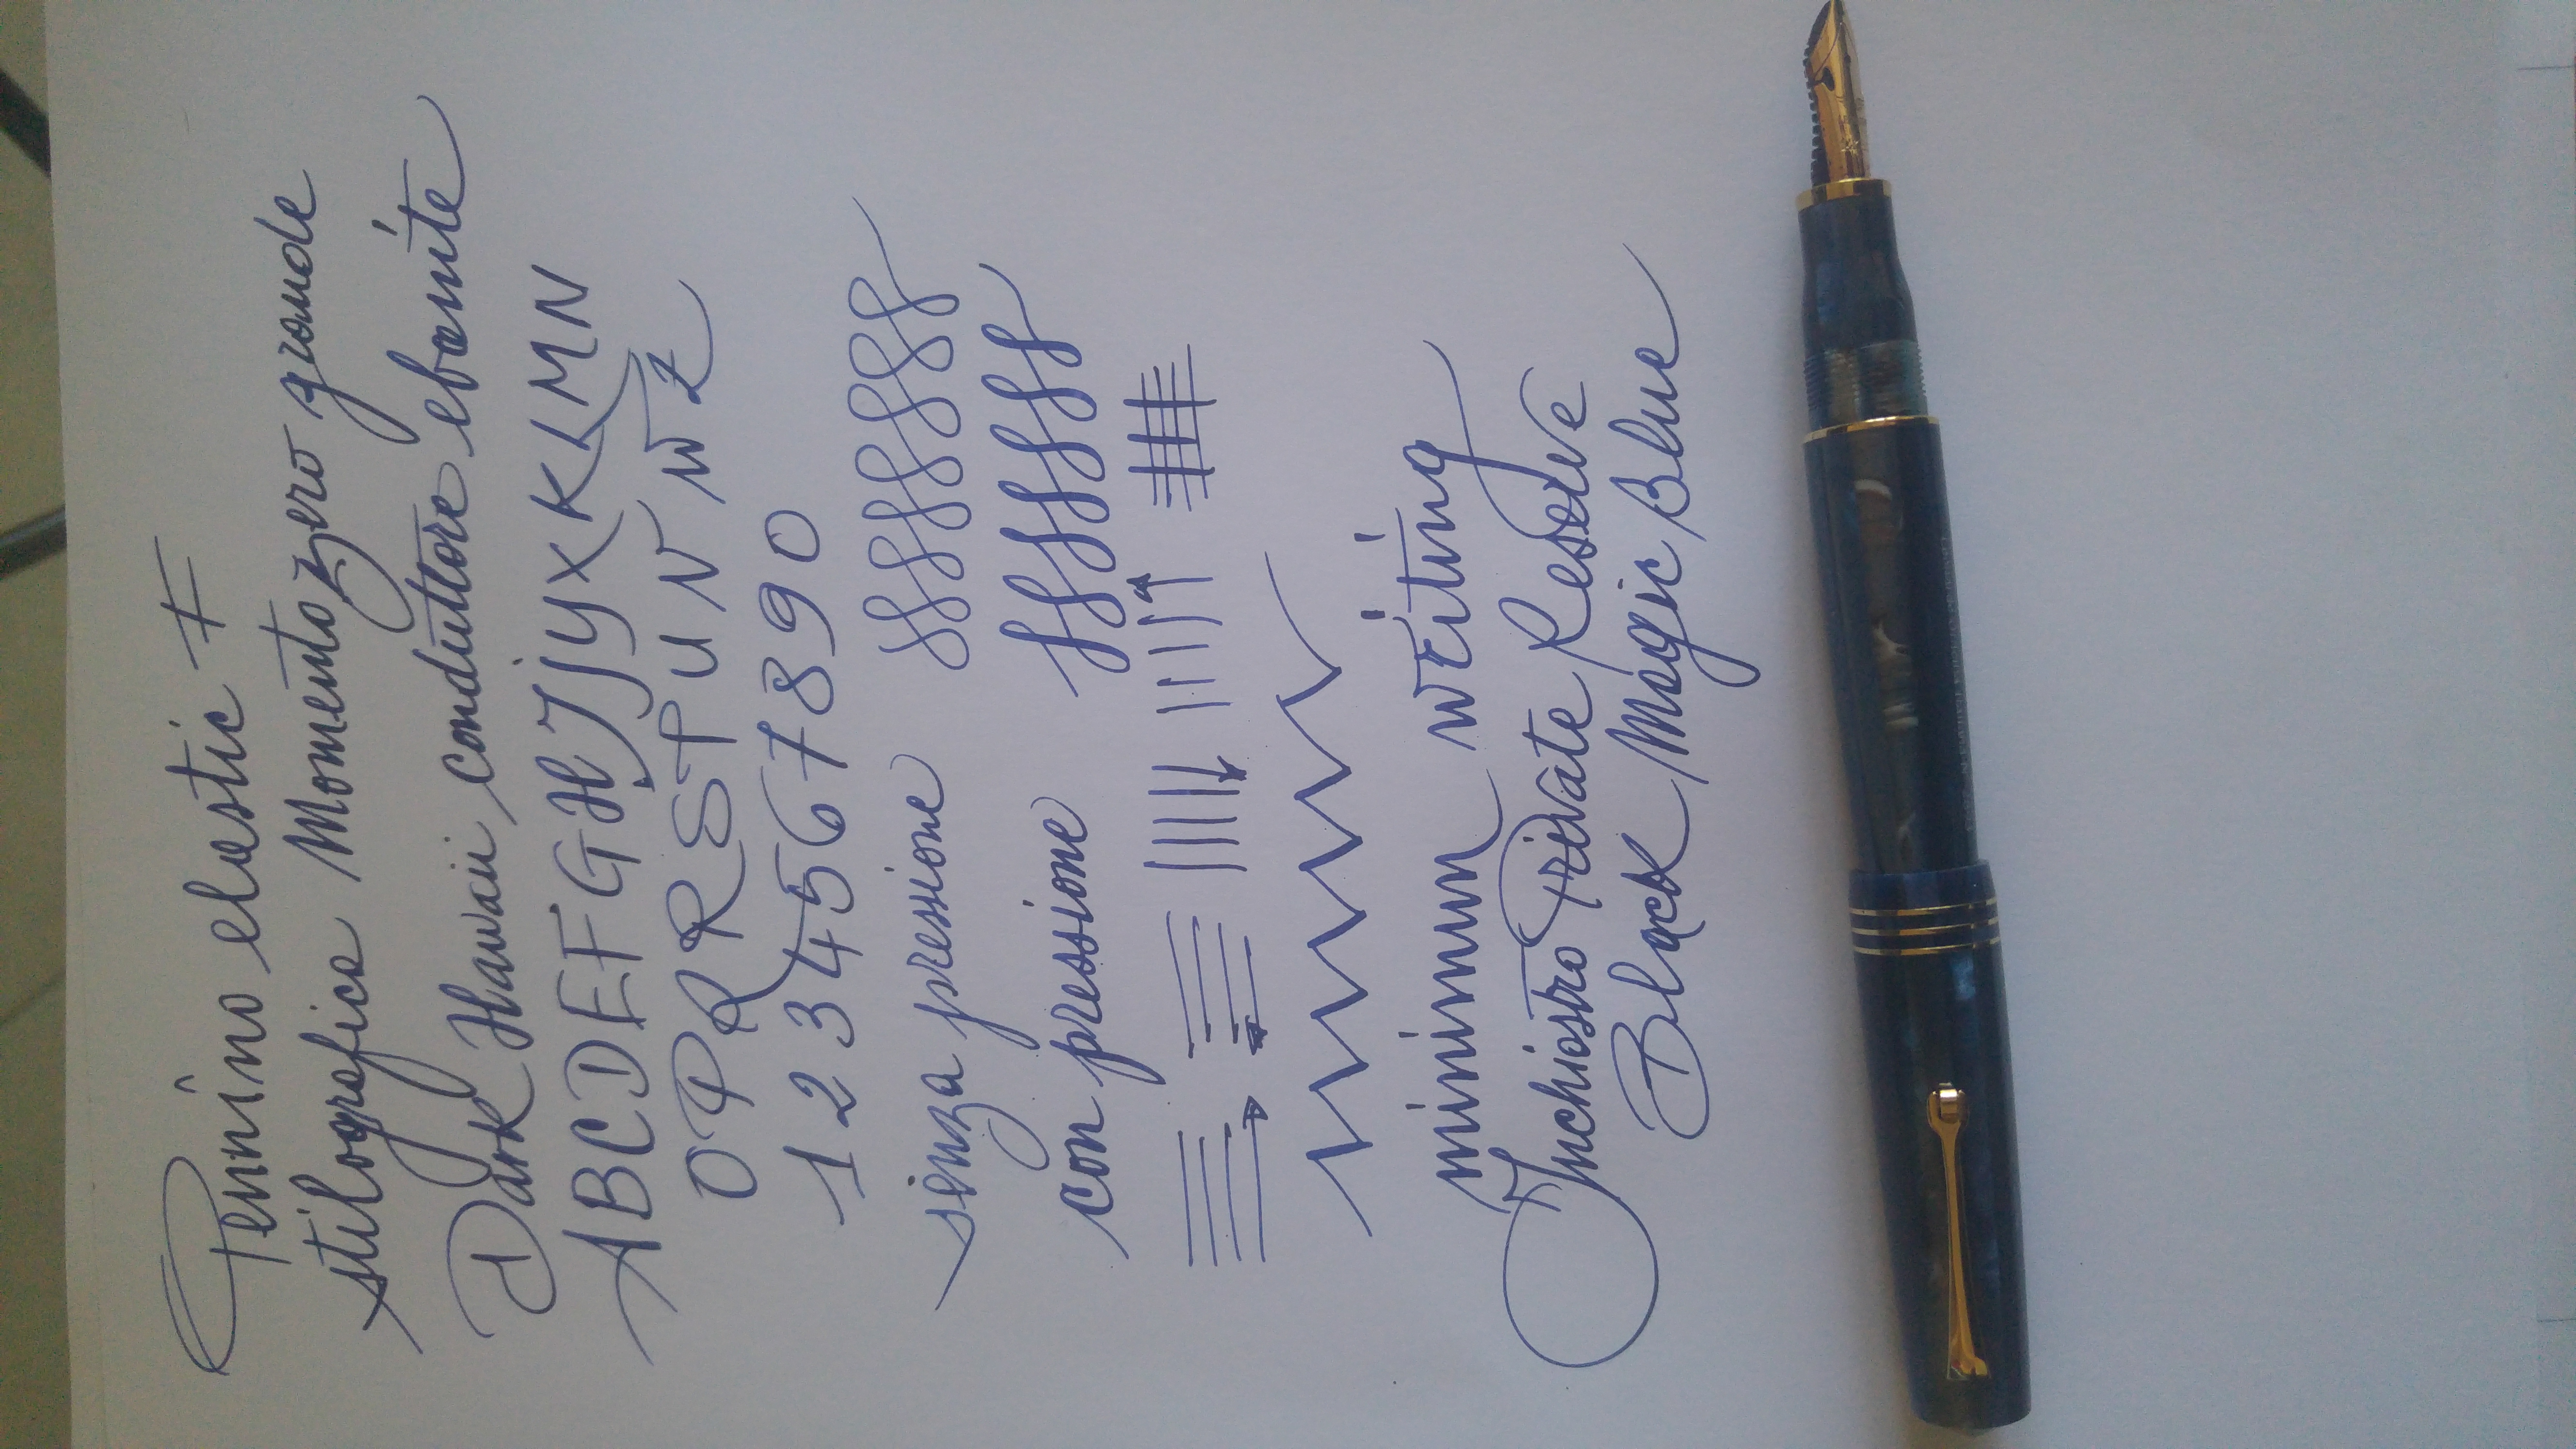 Pennino elastic F
stilografica Momento zero grande
Dark Hawaii, conduttore ebanite
ABCDEFGHJjYXKLMN
OPRRSTUVWZ
1234567890
senza pressione
con pressione
minimum writing
Inchiostro Private Reserve
Black Magic Blue